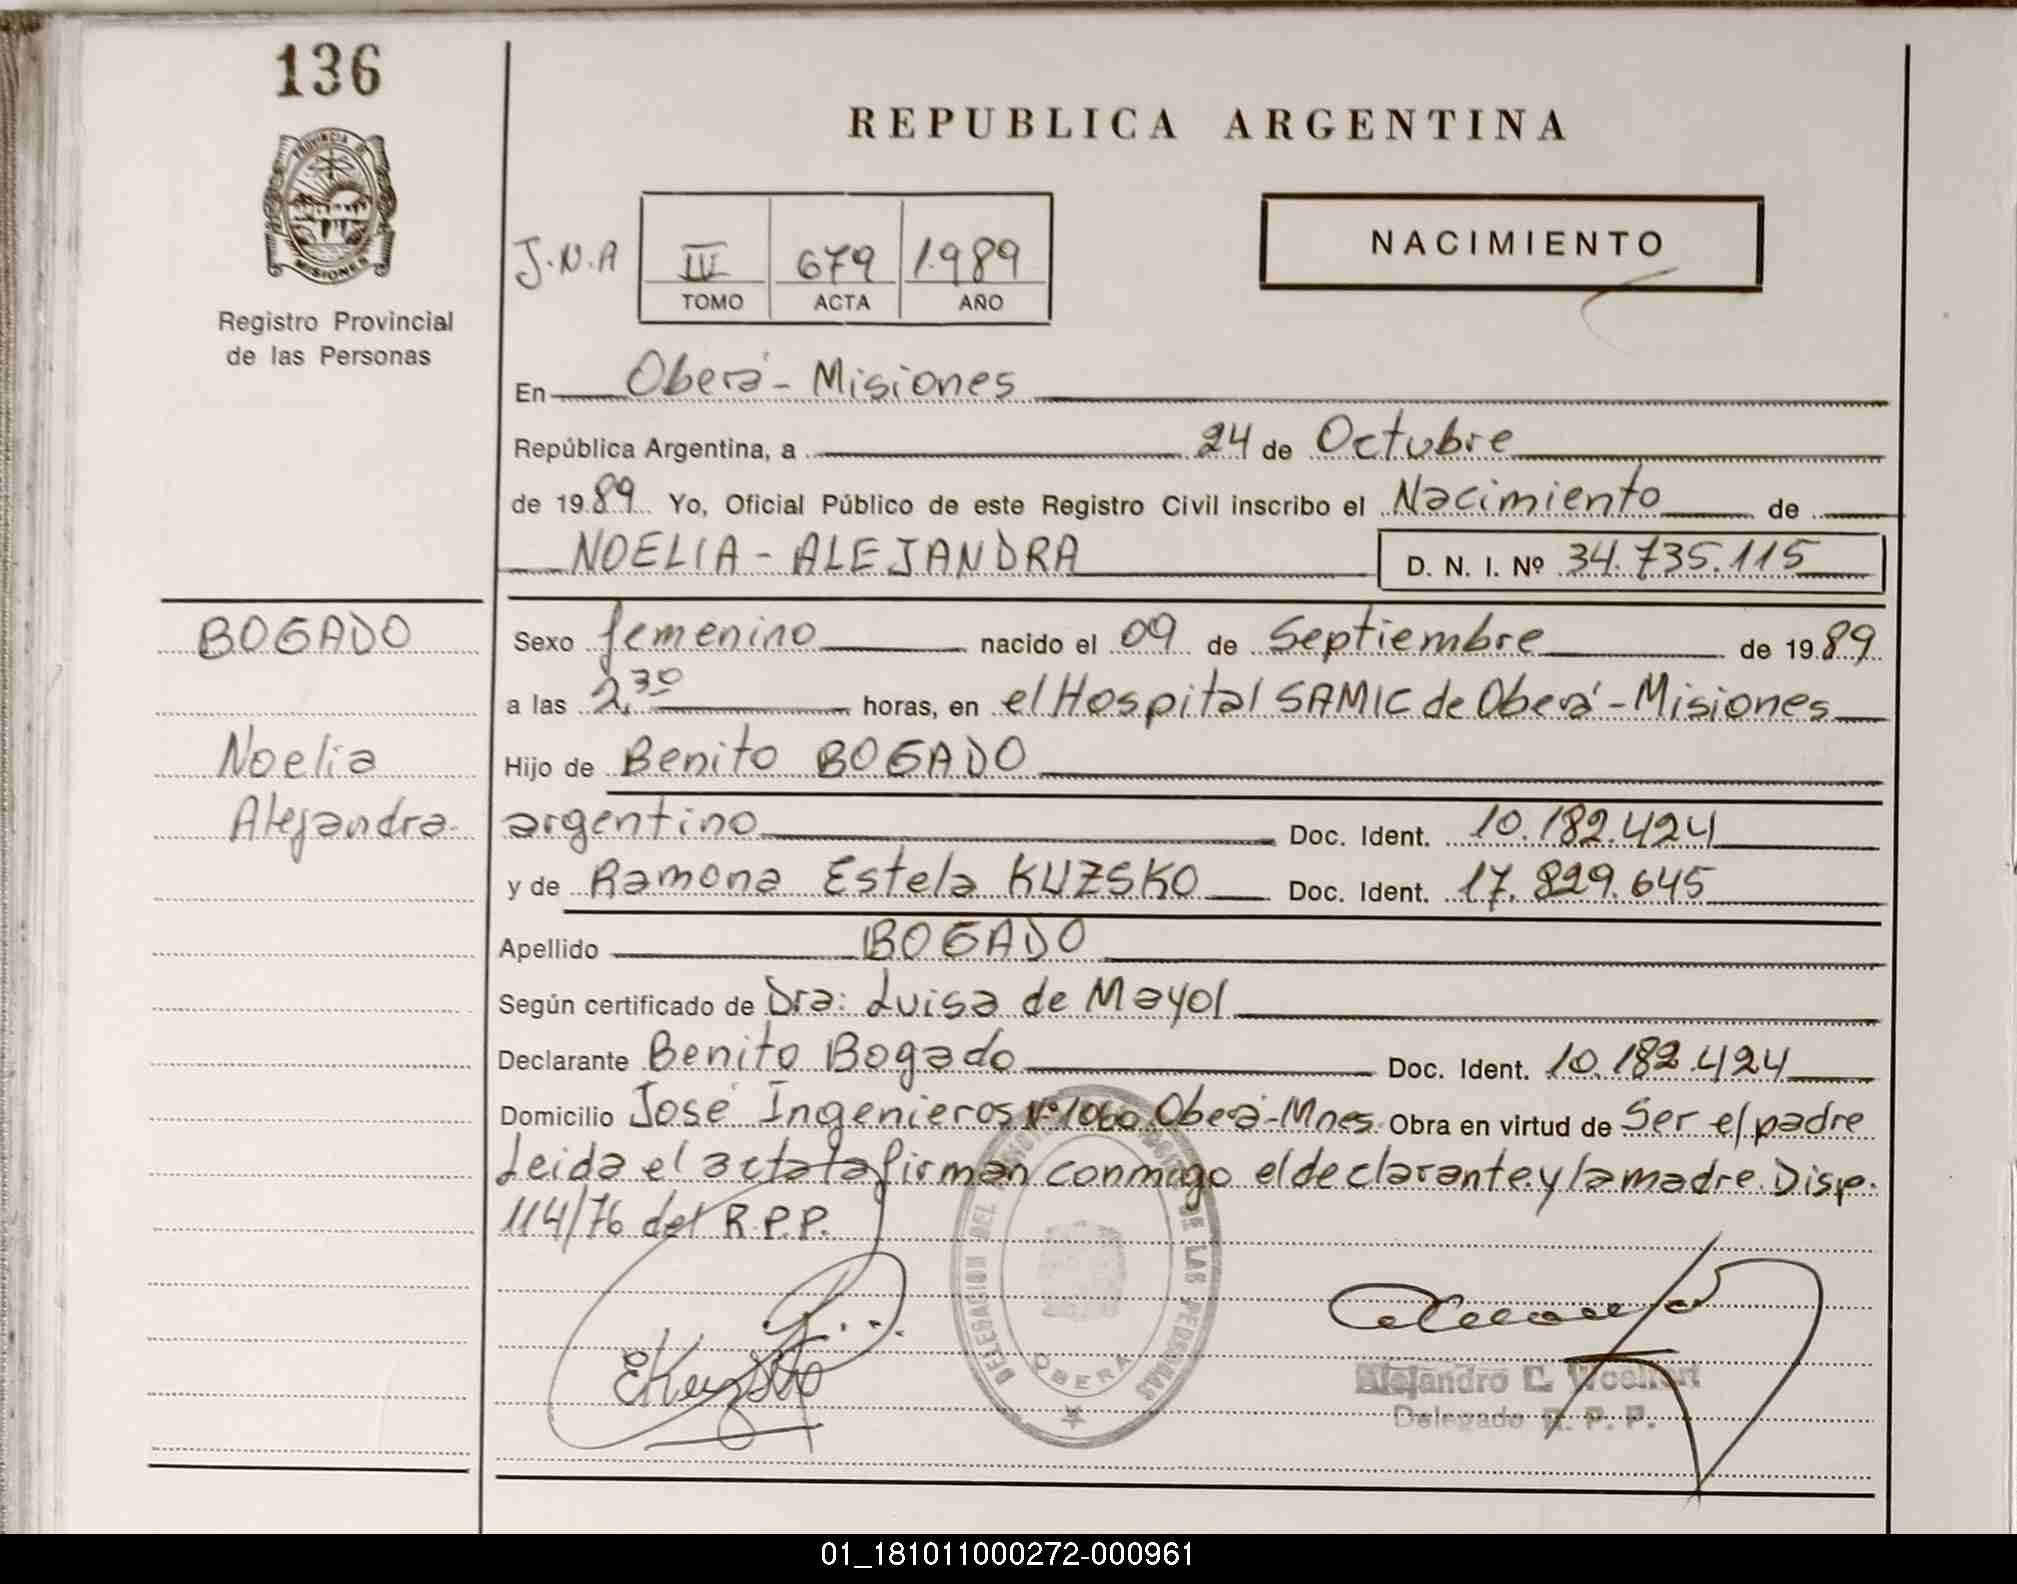 136
PROVINCIA D
MISIONES
Registro Provincial
de las Personas
REPUBLICA ARGENTINA
J.N.A
III 679 1.989
TOMO ACTA AÑO
NACIMIENTO
En Oberá - Misiones
República Argentina, a 24 de Octubre
de 1989 Yo, Oficial Público de este Registro Civil inscribo el Nacimiento de
NOELIA - ALEJANDRA D. N. I. Nº 34.735.115
BOGADO
Noelia
Alejandra.
Sexo femenino nacido el 09 de Septiembre de 1989
a las 2,30 horas, en el Hospital SAMIC de Oberá - Misiones
Hijo de Benito BOGADO
argentino Doc. Ident. 10.182.424
y de Ramona Estela KUZSKO Doc. Ident. 17.829.645
Apellido BOGADO
Según certificado de Dra: Luisa de Mayol
Declarante Benito Bogado Doc. Ident. 10.182.424
Domicilio José Ingenieros Nº 1060 Oberá - Mnes. Obra en virtud de Ser el padre
Leida el acta la firman conmigo el declarante y la madre. Disp.
114/76 del R.P.P.
DELEGACION DEL DE LAS PERSONAS
OBERA
EKuzsko
Alejandro E.
Delegado R. P. P.
01_181011000272-000961